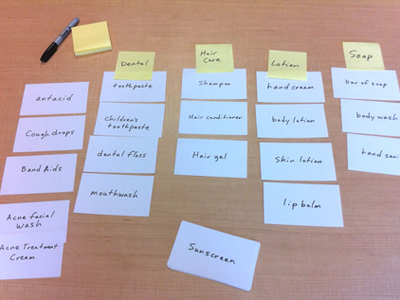 antacid
Cough drops
Band Aids
Acne facial
wash
Acne Treatment
Cream
Dental
toothpaste
Children's
toothpaste
dental floss
mouthwash
Hair
Care
Shampoo
Hair conditioner
Hair gel
Lotion
hand cream
body lotion
Skin lotion
lip balm
Soap
bar of soap
body wash
hand sani
Sunscreen